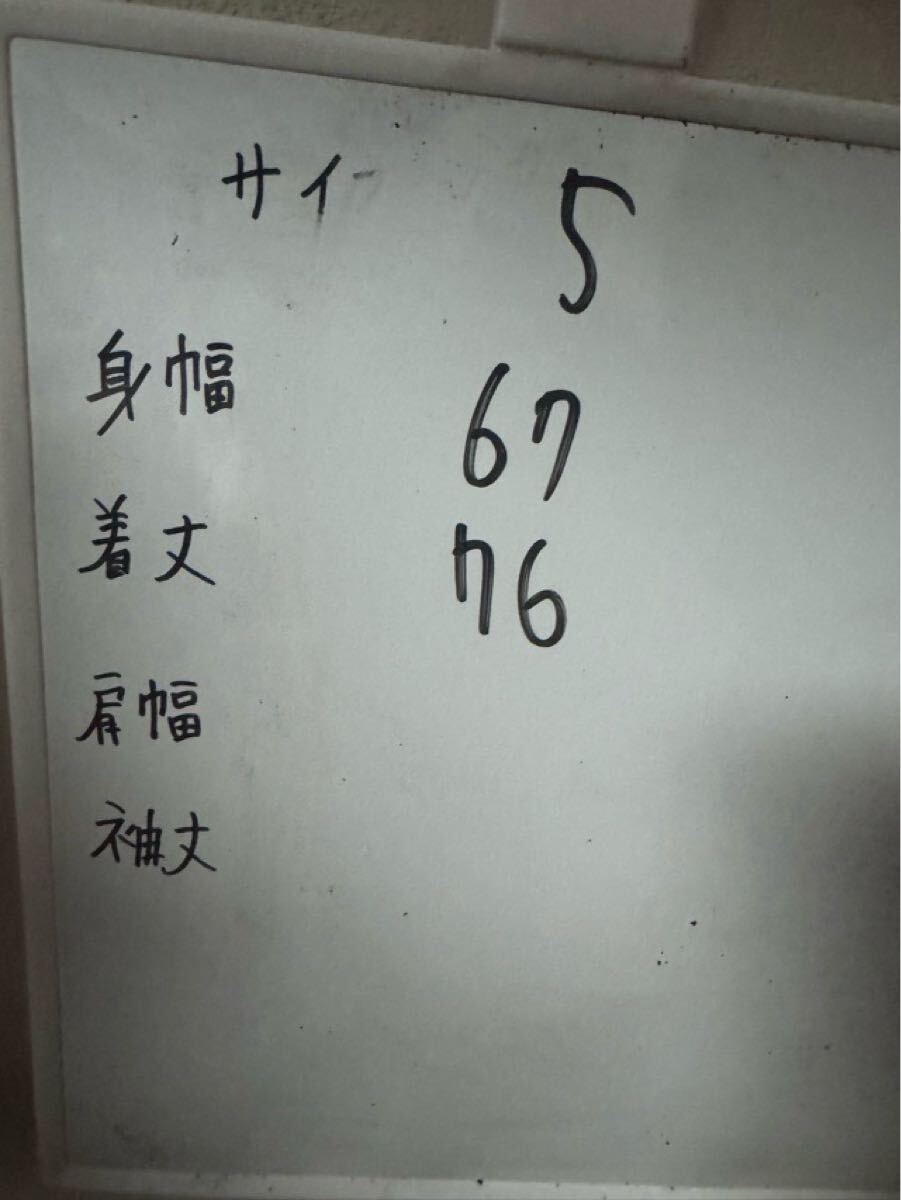 サイ 5
身幅 67
着丈 76
肩幅
袖丈